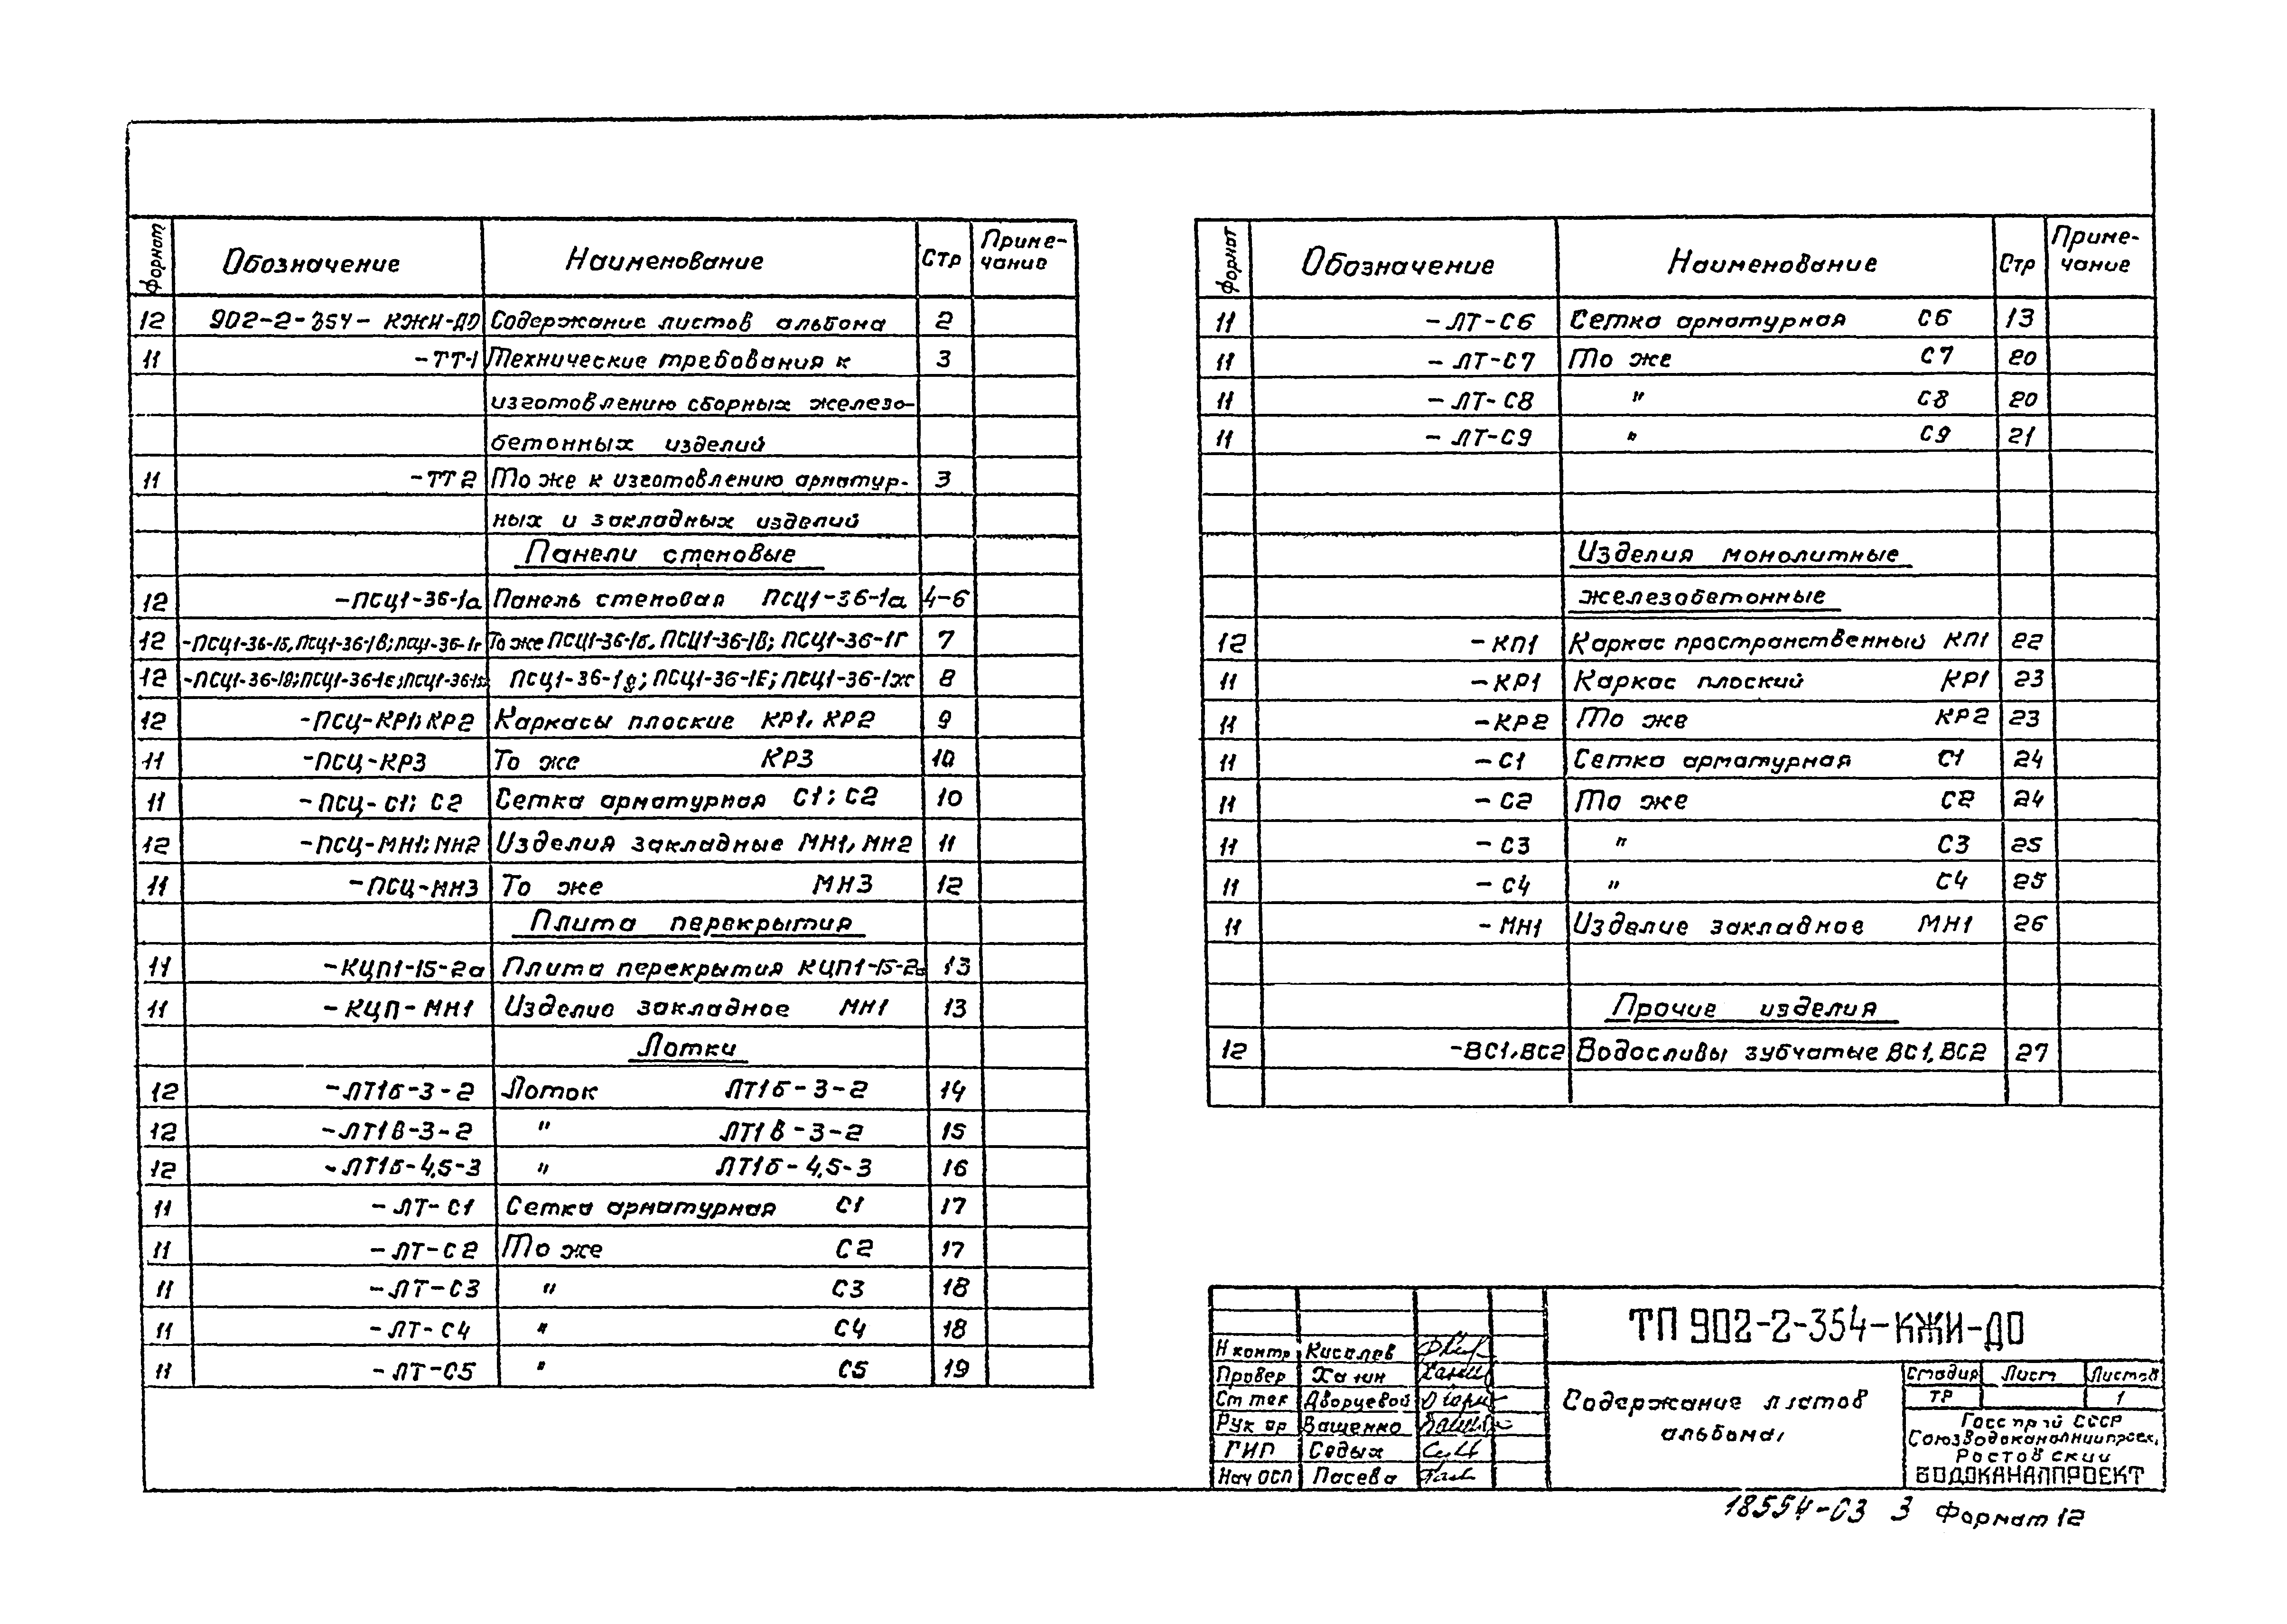 Формат Обозначение Наименование Стр Приме-
чание
12 902-2-354-КЖИ-ДО Содержание листов альбома 2
11 -ТТ-1 Технические требования к 3
изготовлению сборных железо-
бетонных изделий
11 -ТТ2 То же к изготовлению арматур- 3
ных и закладных изделий
Панели стеновые
12 -ПСЦ1-36-1а Панель стеновая ПСЦ1-36-1а 4-6
12 -ПСЦ1-36-1б, ПСЦ1-36-1в; ПСЦ1-36-1г То же ПСЦ1-36-1б, ПСЦ1-36-1в; ПСЦ1-36-1г 7
12 -ПСЦ1-36-1д; ПСЦ1-36-1е; ПСЦ1-36-1ж ПСЦ1-36-1д; ПСЦ1-36-1Е; ПСЦ1-36-1ж 8
12 -ПСЦ-КР1; КР2 Каркасы плоские КР1, КР2 9
11 -ПСЦ-КР3 То же КР3 10
11 -ПСЦ-С1; С2 Сетка арматурная С1; С2 10
12 -ПСЦ-МН1; МН2 Изделия закладные МН1, МН2 11
11 -ПСЦ-МН3 То же МН3 12
Плита перекрытия
11 -КЦП1-15-2а Плита перекрытия КЦП1-15-2а 13
11 -КЦП-МН1 Изделие закладное МН1 13
Лотки
12 -ЛТ1б-3-2 Лоток ЛТ1б-3-2 14
12 -ЛТ1в-3-2 " ЛТ1в-3-2 15
12 -ЛТ1б-4,5-3 " ЛТ1б-4,5-3 16
11 -ЛТ-С1 Сетка арматурная С1 17
11 -ЛТ-С2 То же С2 17
11 -ЛТ-С3 " С3 18
11 -ЛТ-С4 " С4 18
11 -ЛТ-С5 " С5 19
Формат Обозначение Наименование Стр Приме-
чание
11 -ЛТ-С6 Сетка арматурная С6 13
11 -ЛТ-С7 То же С7 20
11 -ЛТ-С8 " С8 20
11 -ЛТ-С9 " С9 21
Изделия монолитные
железобетонные
12 -КП1 Каркас пространственный КП1 22
11 -КР1 Каркас плоский КР1 23
11 -КР2 То же КР2 23
11 -С1 Сетка арматурная С1 24
11 -С2 То же С2 24
11 -С3 " С3 25
11 -С4 " С4 25
11 -МН1 Изделие закладное МН1 26
Прочие изделия
12 -ВС1, ВС2 Водосливы зубчатые ВС1, ВС2 27
ТП 902-2-354-КЖИ-ДО
Н контр Киселев
Провер Ханин
Ст тех Дворцевой
Рук гр Ващенко
ГИП Седых
Нач ОСП Пасева
Содержание листов
альбома
Стадия Лист Листов
ТР 1
Госстрой СССР
Союзводоканалниипроект
Ростовский
ВОДОКАНАЛПРОЕКТ
18554-03 3 Формат 12